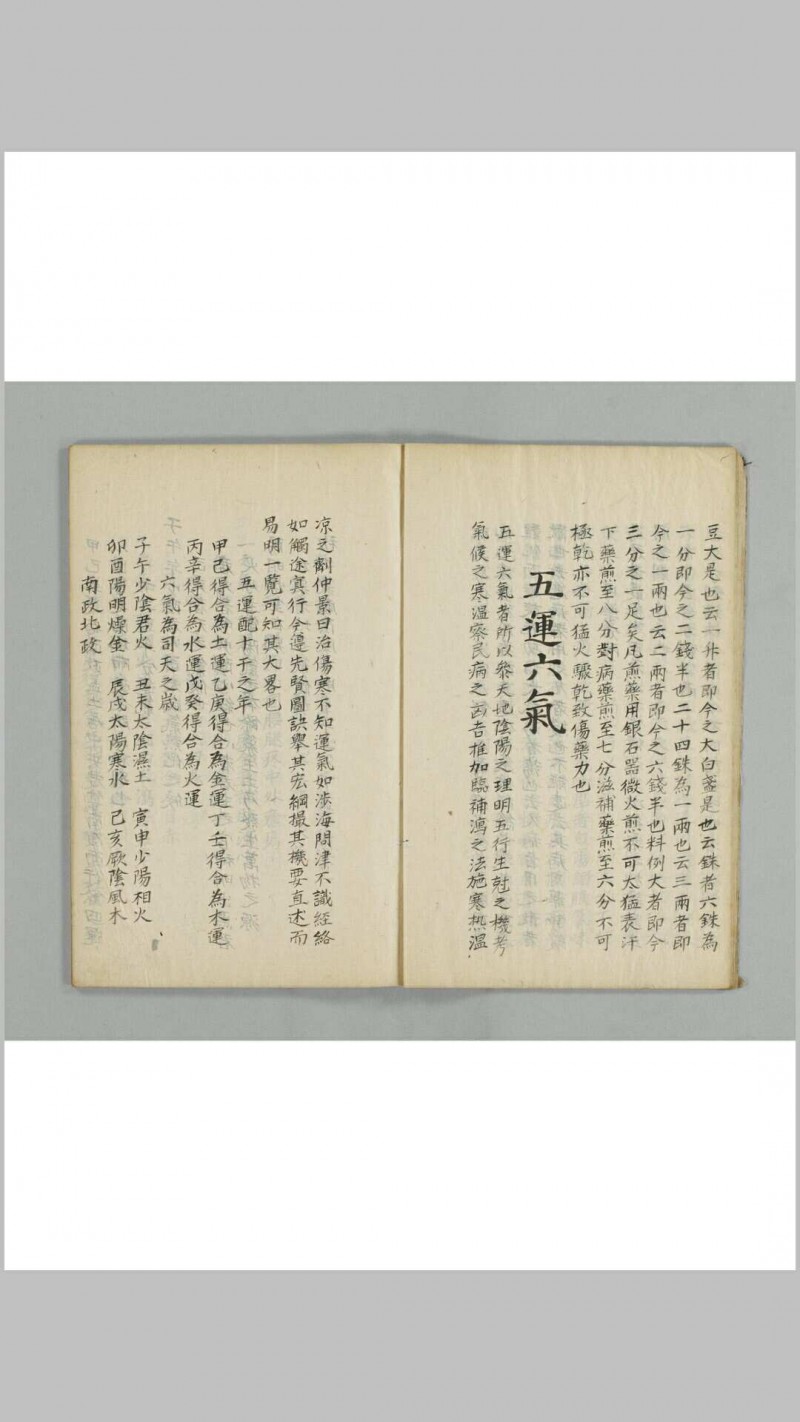 豆大是也云一升者即今之大白盞是也云銖者六銖為
一分即今之二錢半也二十四銖為一兩也云三兩者即
今之一兩也云二兩者即今之六錢半也料例大者即今
三分之一足矣凡煎藥用銀石器微火煎不可太猛表汗
下藥煎至八分對病藥煎至七分滋補藥煎至六分不可
極乾亦不可猛火驟乾致傷藥力也
五運六氣
五運六氣者所以參天地陰陽之理明五行生尅之機考
氣候之寒溫察民病之凶吉推加臨補瀉之法施寒热溫
凉之劑仲景曰治傷寒不知運氣如涉海問津不識經絡
如觸途冥行今遵先賢圖訣舉其宏綱撮其機要直述而
易明一覽可知其大畧也
五運配十干之年
甲己得合為土運乙庚得合為金運丁壬得合為木運
丙辛得合為水運戊癸得合為火運
六氣為司天之歲
子午少陰君火 丑未太陰濕土 寅申少陽相火
卯酉陽明燥金 辰戌太陽寒水 己亥厥陰風木
南政北政